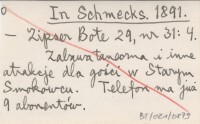 In Schmecks. 1891.
— Zipser Bote 29, nr 31: 4.
Zabawa taneczna i inne
atrakcje dla gości w Starym
Smokowcu. Telefon ma już
9 abonentów.